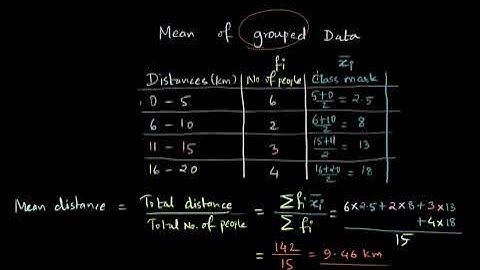 Mean of grouped Data
fi x̄i
Distances (km) No. of people Class mark
0 - 5 6 5+0/2 = 2.5
6 - 10 2 6+10/2 = 8
11 - 15 3 15+11/2 = 13
16 - 20 4 16+20/2 = 18
Mean distance = Total distance/Total No. of people = Σ fi x̄i/Σ fi = 6×2.5+2×8+3×13+4×18/15
= 142/15 = 9.46 km